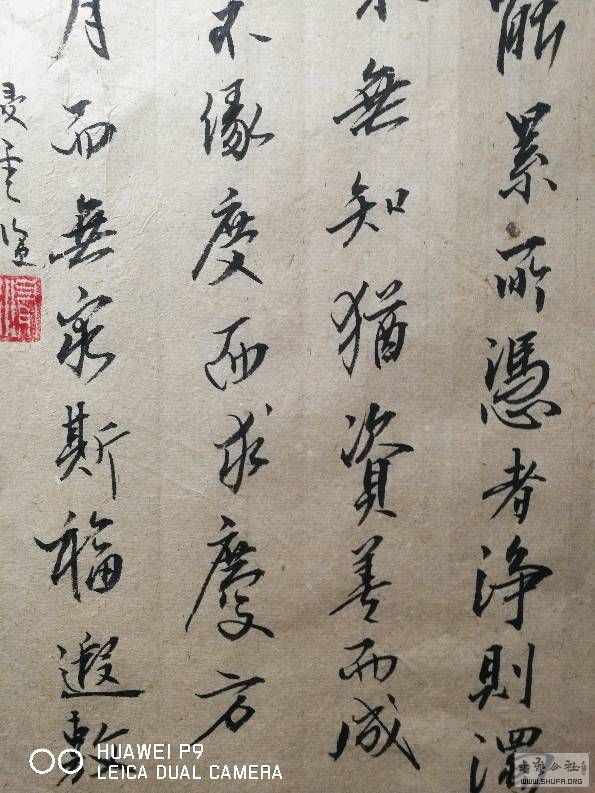 能累所憑者淨則濁
木無知猶資善而成
不緣慶而求慶方
月而無窮斯福遐敷
HUAWEI P9
LEICA DUAL CAMERA
WWW.SHUFA.ORG